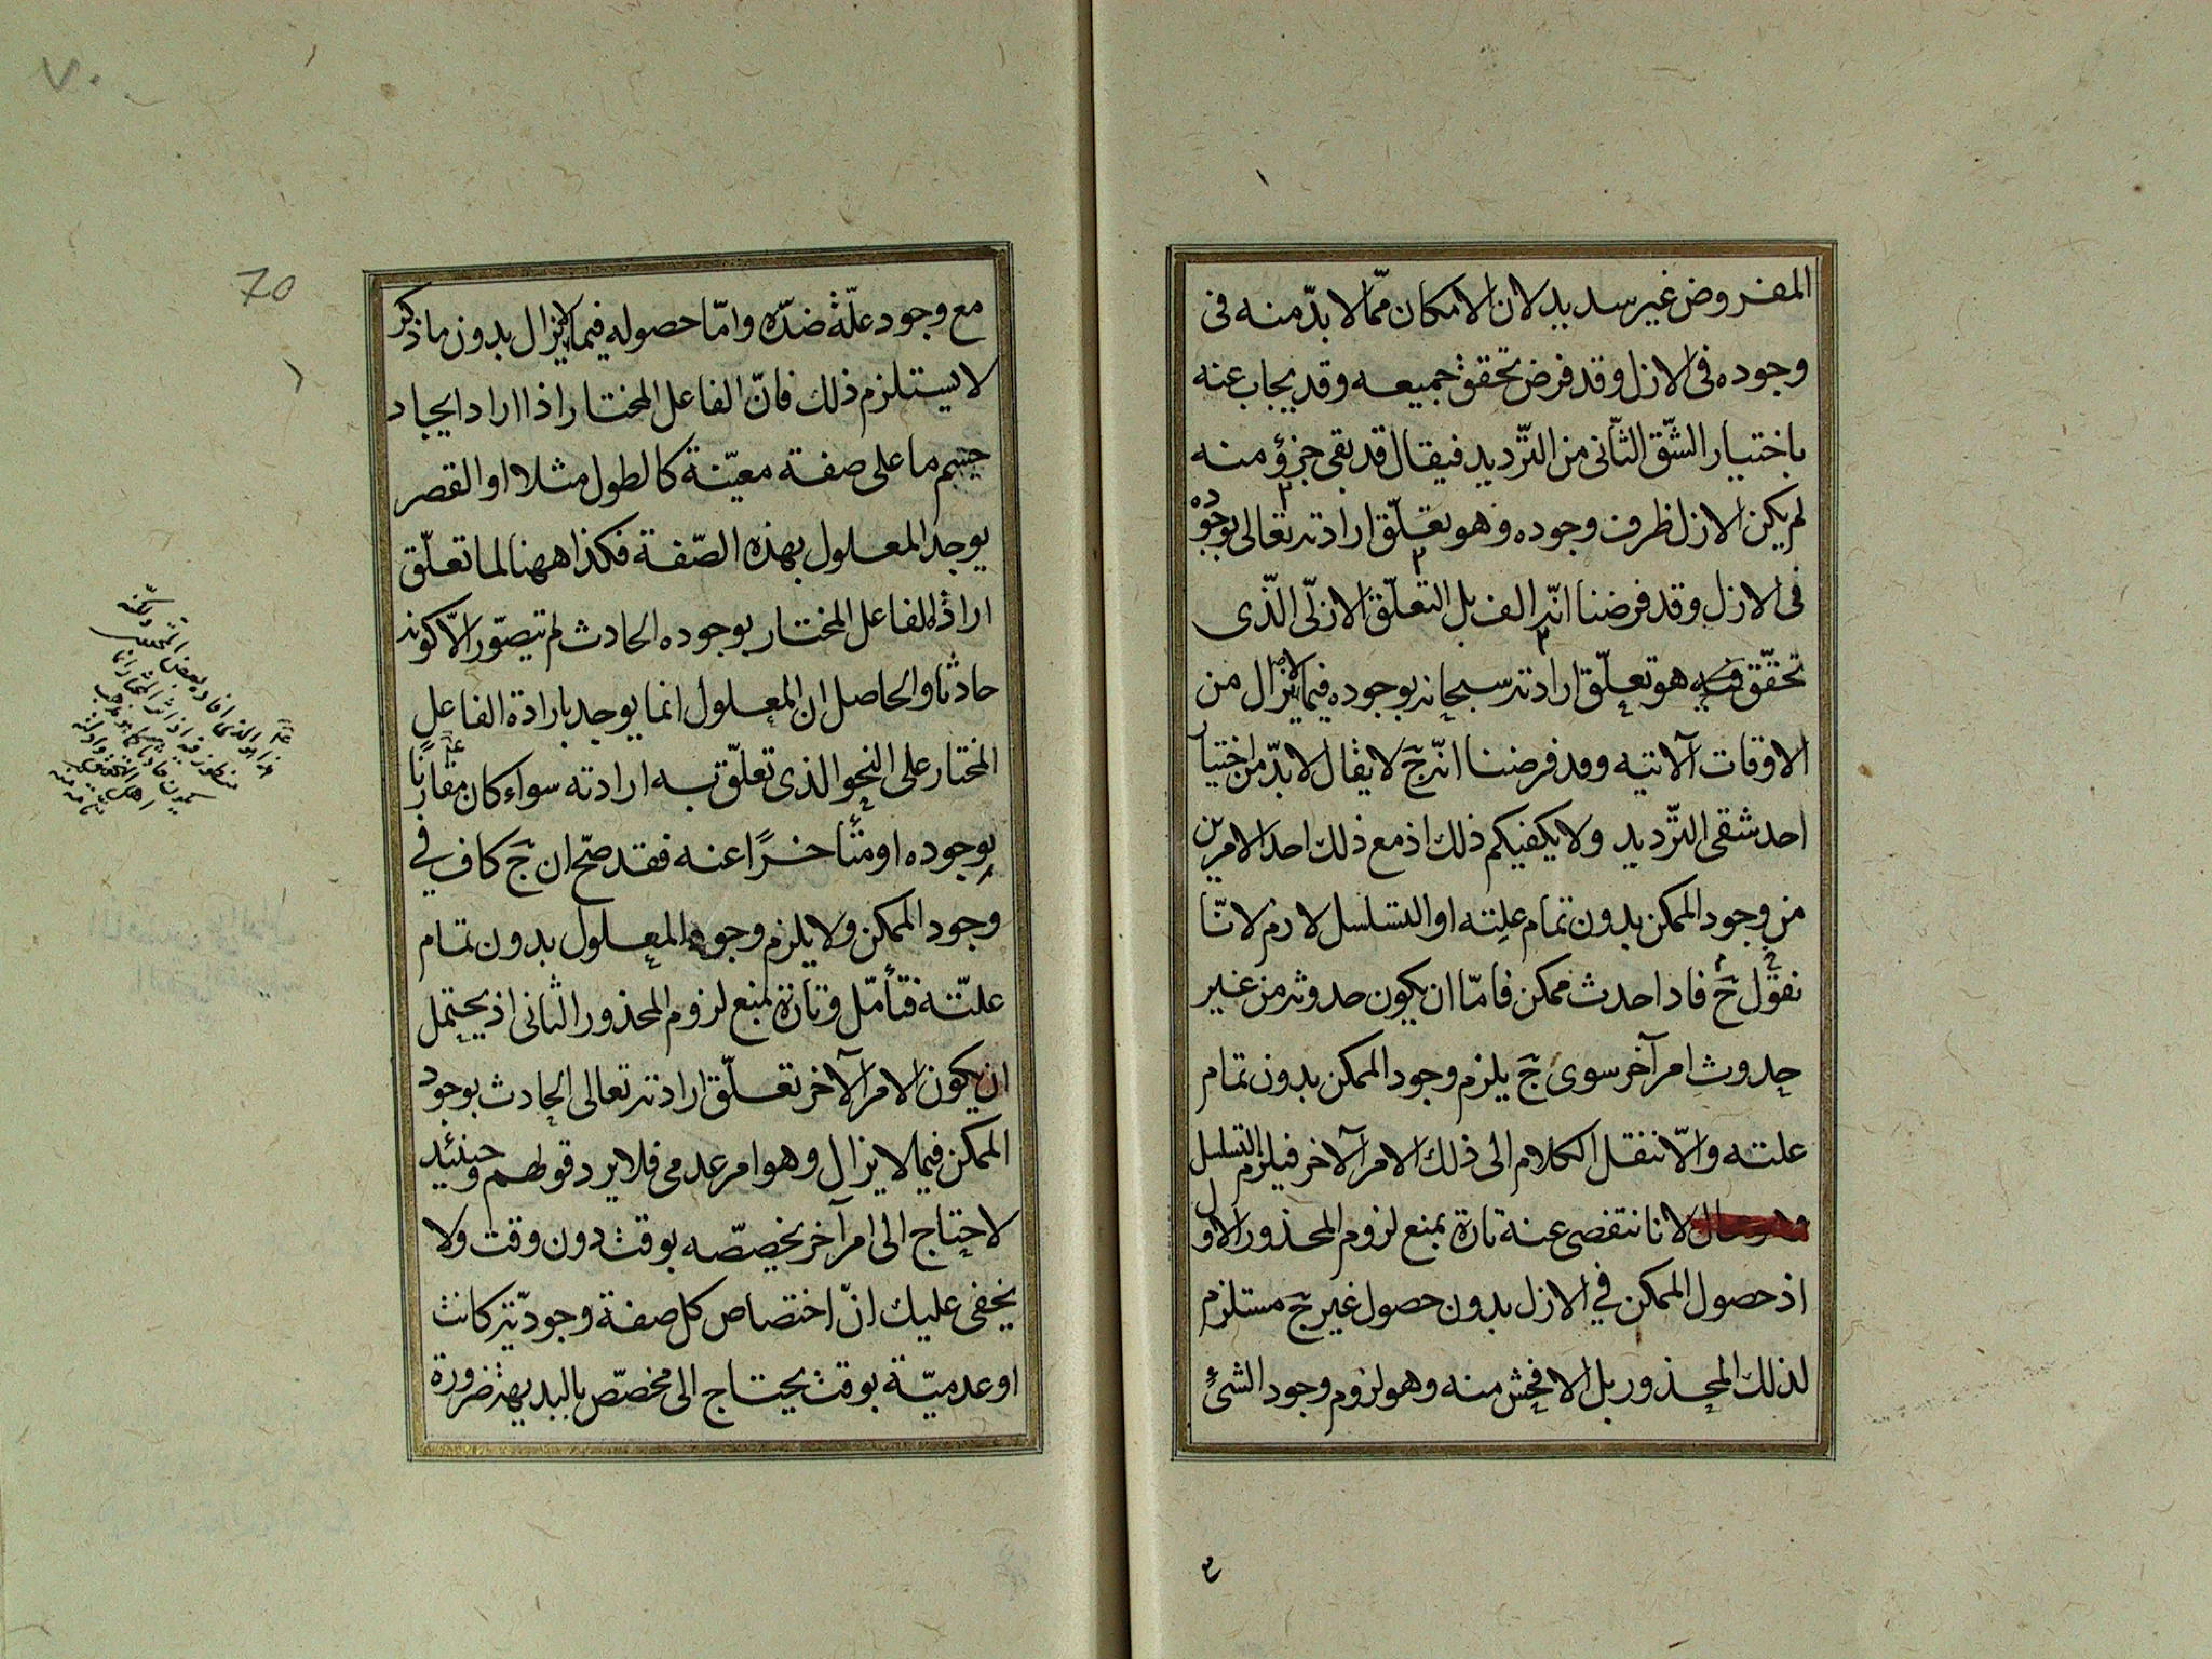 المفروض غير سديد لان الامكان ممّا لا بدّ منه فى
وجوده فى الازل وقد فرض تحقق جميعه وقد يجاب عنه
باختيار الشّق الثّانى من التّرديد فيقال قد بقى جزؤ منه
لم يكن الازل ظرف وجوده وهو تعلّق ارادته تعالى بوجوده
فى الازل وقد فرضنا انّه الف بل التعلّق الازلّى الّذى
تحقّق فيه هو تعلّق ارادته سبحانه بوجوده فيما لا يزال من
الاوقات الآتيه وقد فرضنا انّه ج لا يقال لا بدّ من اختيار
احد شقى التّرديد ولا يكفيكم ذلك اذ مع ذلك احد الامرين
من وجود الممكن بدون تمام علته او التسلسل لازم لانّا
نقول ح فاذا حدث ممكن فامّا ان يكون حدوثه من غير
حدوث امر آخر سوى ج يلزم وجود الممكن بدون تمام
علته والّا ننقل الكلام الى ذلك الامر الآخر فيلزم التسلسل
لانا نتفصى عنه تارة بمنع لزوم المحذور الاول
اذ حصول الممكن في الازل بدون حصول غير ج مستلزم
لذلك المحذور بل الافحش منه وهو لزوم وجود الشئ
٧٠
70
مع وجود علّة ضدّه وامّا حصوله فيما لا يزال بدون ما ذكر
لا يستلزم ذلك فانّ الفاعل المختار اذا اراد ايجاد
جسم ما على صفة معيّنة كالطول مثلا او القصر
يوجد المعلول بهذه الصّفة فكذا ههنا لما تعلّق
ارادة الفاعل المختار بوجوده الحادث لم يتصوّر الّا كونه
حادثا والحاصل ان المعلول انما يوجد بارادة الفاعل
المختار على النحو الذى تعلّق به ارادته سواء كان مقارنًا
بوجوده او متأخرًا عنه فقد صحّ ان ج كاف في
وجود الممكن ولا يلزم وجود المعلول بدون تمام
علتّه فتأمّل وتارة بمنع لزوم المحذور الثانى اذ يحتمل
ان يكون الامر الآخر تعلّق ارادته تعالى الحادث بوجود
الممكن فيما لا يزال وهو امر عدمى فلا يرد قولهم وحينئيد
لاحتاج الى امر آخر يخصّصه بوقت دون وقت ولا
يخفى عليك انّ اختصاص كل صفة وجوديّة كانت
او عدميّة بوقت يحتاج الى مخصّص بالبديهة ضرورة